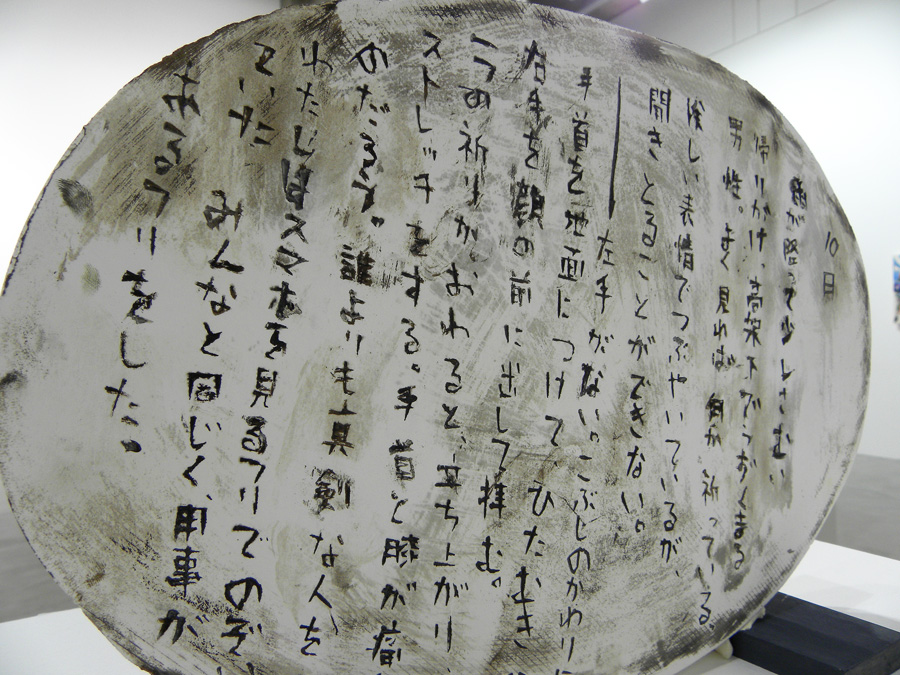 10日
雨が降って少しさむい
帰りがけ、高架下でうずくまる
男性。よく見れば何か祈っている。
険しい表情でつぶやいているが、
聞きとることができない。
——左手がない。こぶしのかわりに
手首を地面につけて、ひたむき
右手を顔の前に出して拝む。
祈りがおわると、立ち上がり、
ストレッチをする。手首と膝が痛
のだろう。誰よりも真剣な人を
わたしはスマホを見るフリでのぞい
ていた みんなと同じく、用事が
あるフリをした。